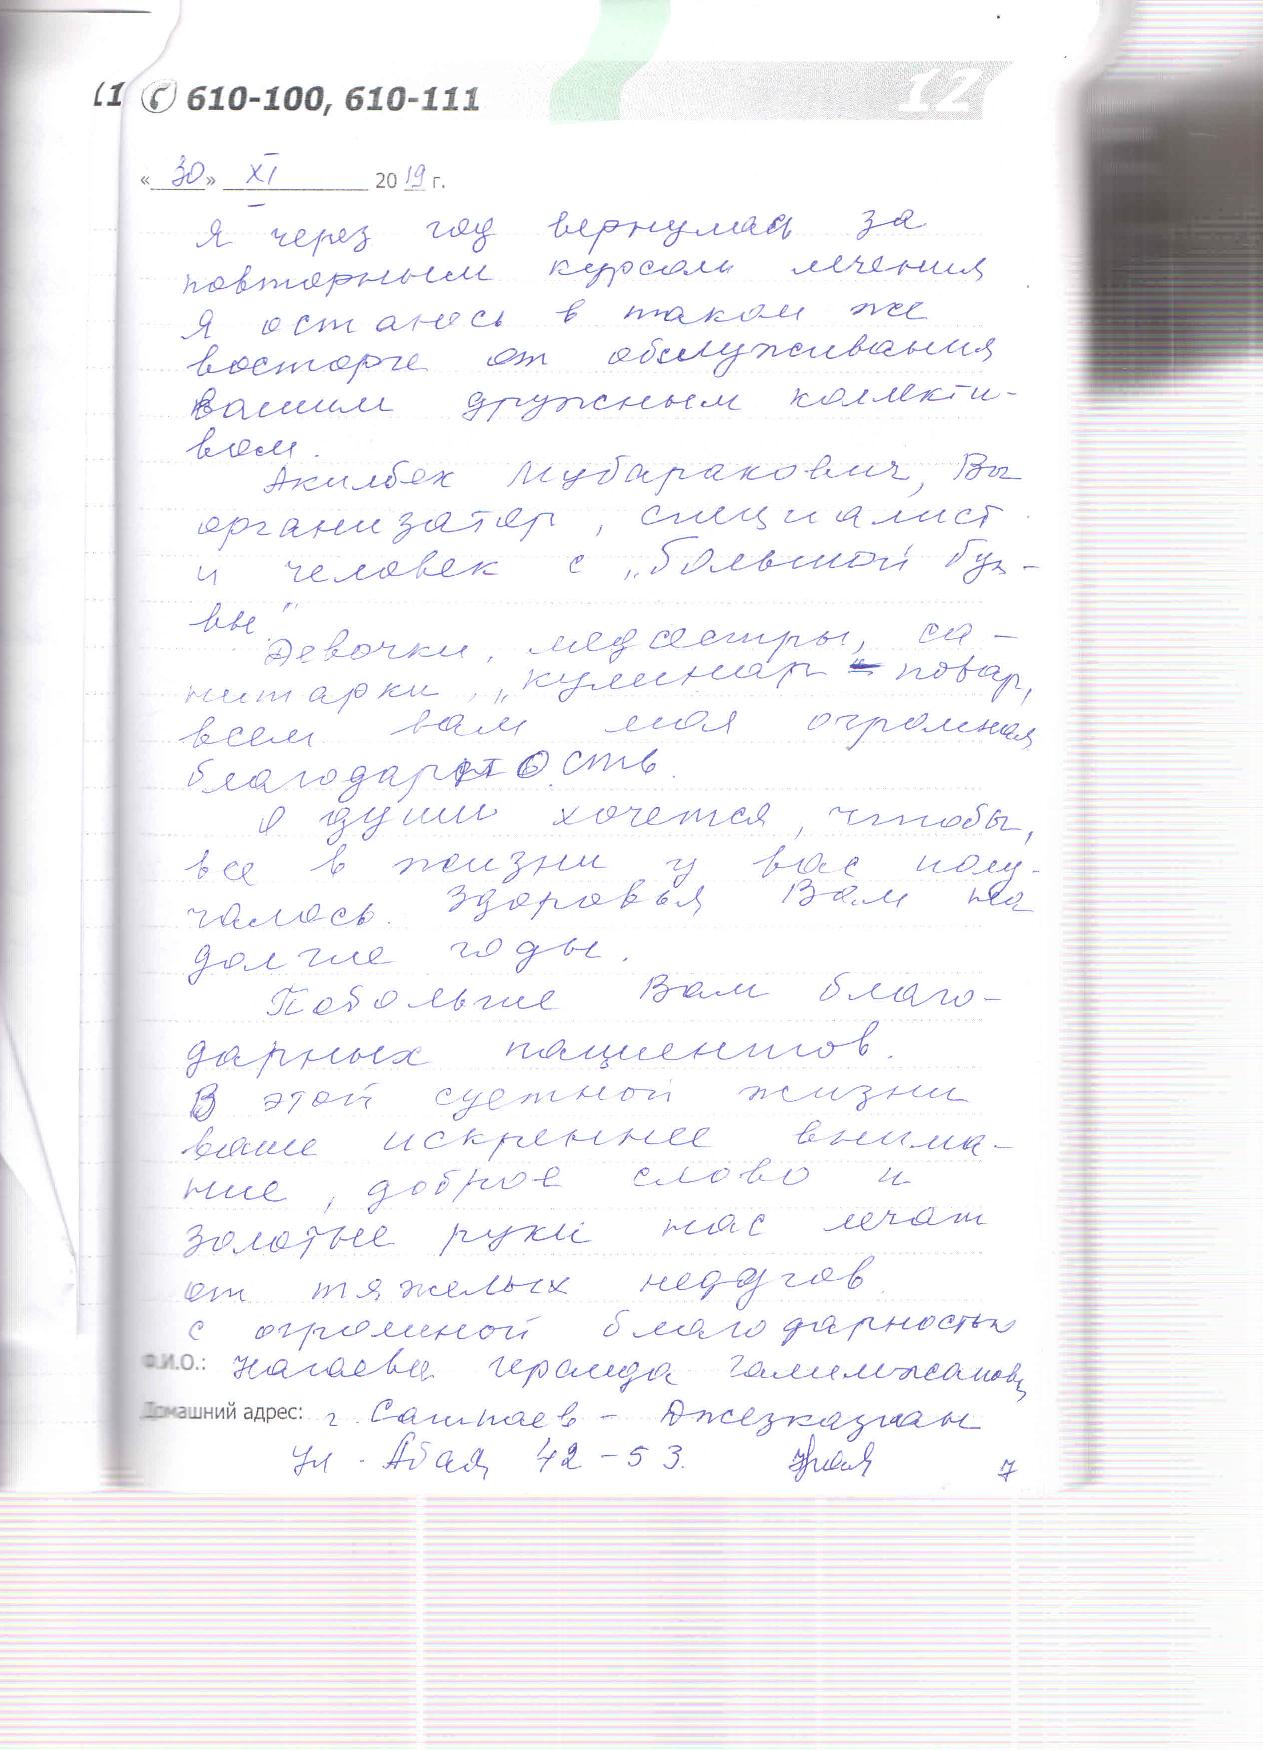 610-100, 610-111
12
«30» XI 2019 г.
Я через год вернулась за
повторным курсом лечения
Я остаюсь в таком же
восторге от обслуживания
вашим дружным коллекти-
вом.
Акилбек Мубаракович, Вы
организатор, специалист
и человек с „большой бук-
вы"
Девочки, медсестры, са-
нитарки, „кулинар" - повар,
всем вам моя огромная
благодарность.
С души хочется, чтобы,
все в жизни у вас полу-
чалось. Здоровья Вам на
долгие годы.
Побольше Вам благо-
дарных пациентов.
В этой суетной жизни
ваше искреннее внима-
ние, доброе слово и
золотые руки нас лечат
от тяжелых недугов.
с огромной благодарностью
Ф.И.О.: Нагаева Галимжановн
Домашний адрес: г. Сатпаев - Джезказган
ул. Абая 42-53.
7